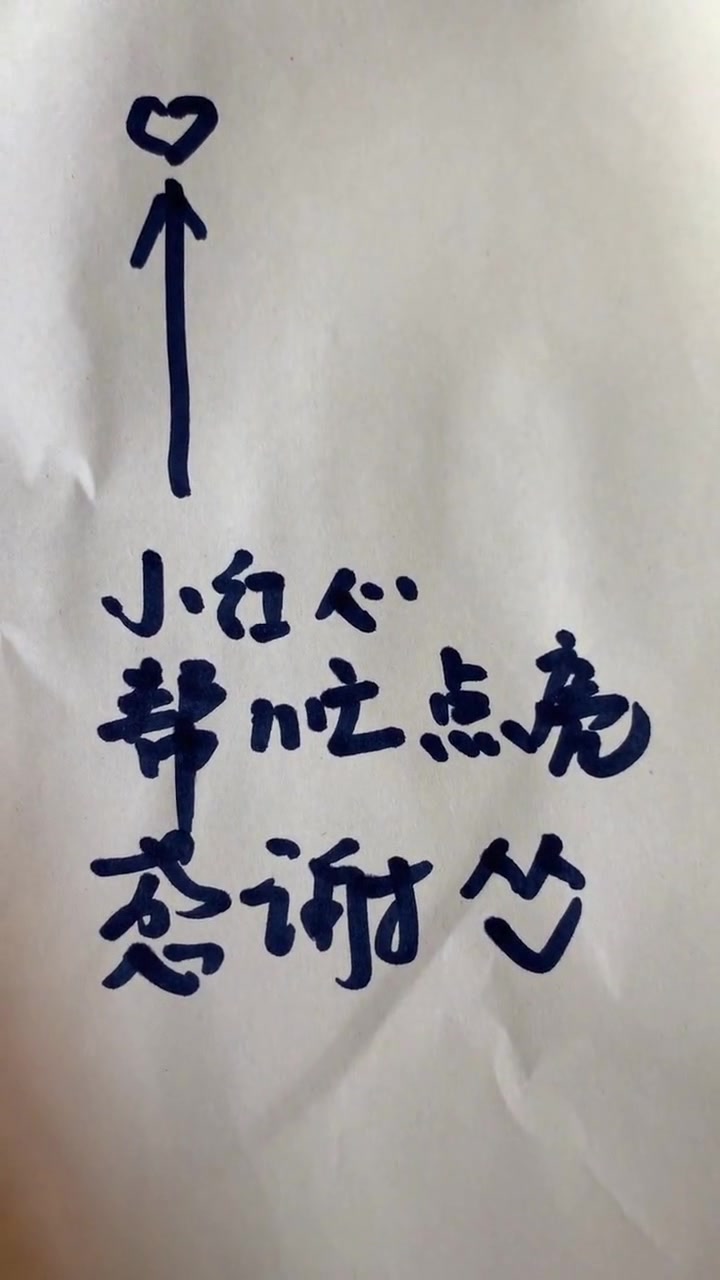 小红心
帮忙点亮
感谢